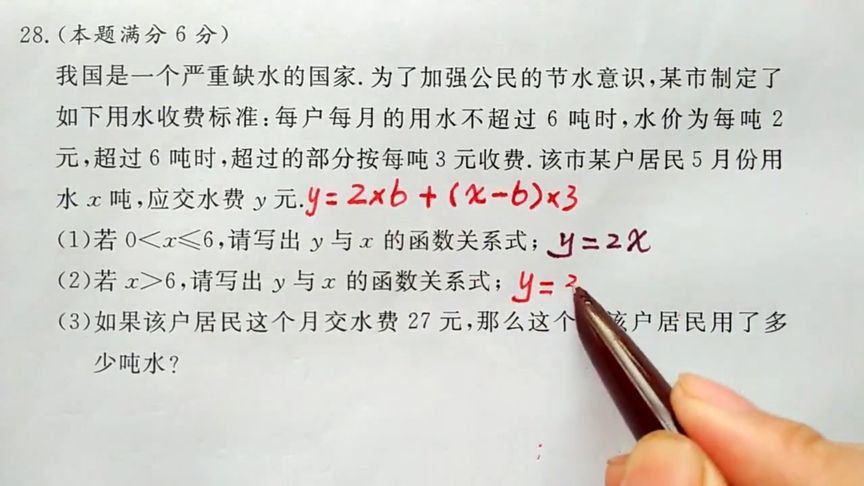 28.(本题满分 6 分)
我国是一个严重缺水的国家.为了加强公民的节水意识,某市制定了
如下用水收费标准:每户每月的用水不超过 6 吨时,水价为每吨 2
元,超过 6 吨时,超过的部分按每吨 3 元收费.该市某户居民 5 月份用
水 x 吨,应交水费 y 元. y=2×6+(x-6)×3
(1)若 0<x≤6,请写出 y 与 x 的函数关系式; y=2x
(2)若 x>6,请写出 y 与 x 的函数关系式; y=
(3)如果该户居民这个月交水费 27 元,那么这个 该户居民用了多
少吨水?